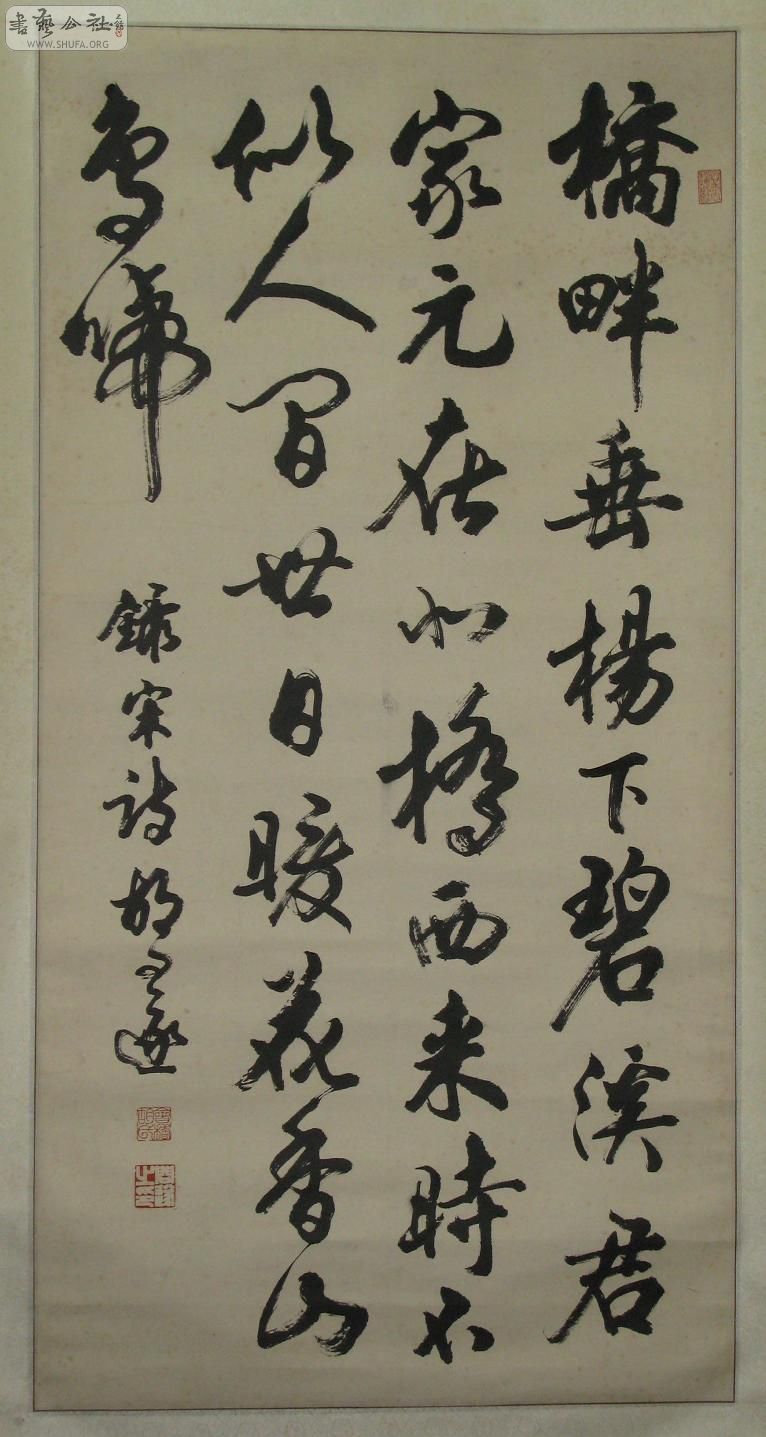 書藝公社
WWW.SHUFA.ORG
橋畔垂楊下碧溪君
家元在北橋西来時不
似人間世日暖花香山
鳥啼
錄宋詩胡問遂